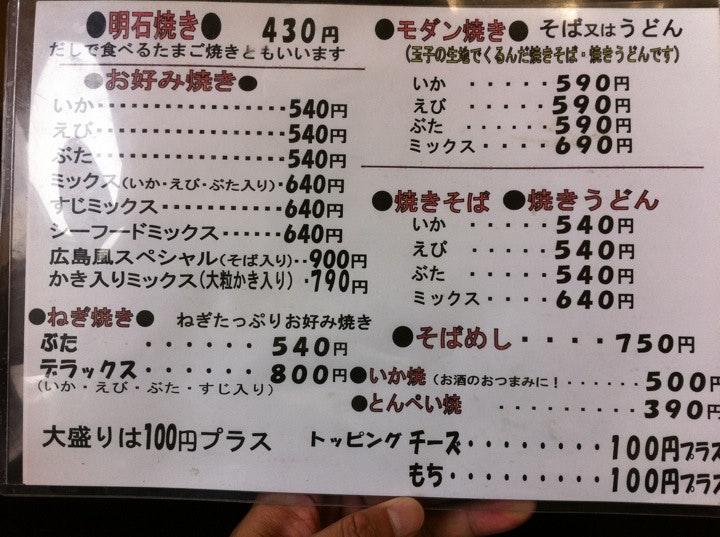 ●明石焼き● 430円
だしで食べるたまご焼きともいいます
●お好み焼き●
いか・・・・・・・・・・・・・・・・・540円
えび・・・・・・・・・・・・・・・・・540円
ぶた・・・・・・・・・・・・・・・・・540円
ミックス(いか・えび・ぶた入り)・640円
すじミックス・・・・・・・・・・640円
シーフードミックス・・・・・640円
広島風スペシャル(そば入り)・・900円
かき入りミックス(大粒かき入り)・790円
●ねぎ焼き● ねぎたっぷりお好み焼き
ぶた ・・・・・・540円
デラックス ・・・・・・800円
(いか・えび・ぶた・すじ入り)
大盛りは100円プラス
●モダン焼き● そば又はうどん
(玉子の生地でくるんだ焼きそば・焼きうどんです)
いか ・・・・・590円
えび ・・・・・590円
ぶた ・・・・・・590円
ミックス・・・・・690円
●焼きそば ●焼きうどん
いか ・・・・・540円
えび ・・・・・540円
ぶた ・・・・・540円
ミックス ・・・・・640円
●そばめし・・・・・750円
●いか焼 (お酒のおつまみに!・・・・・・500円
●とんぺい焼 ・・・・・・・・・・390円
トッピング チーズ・・・・・・・・・100円プラス
もち・・・・・・・・・100円プラス